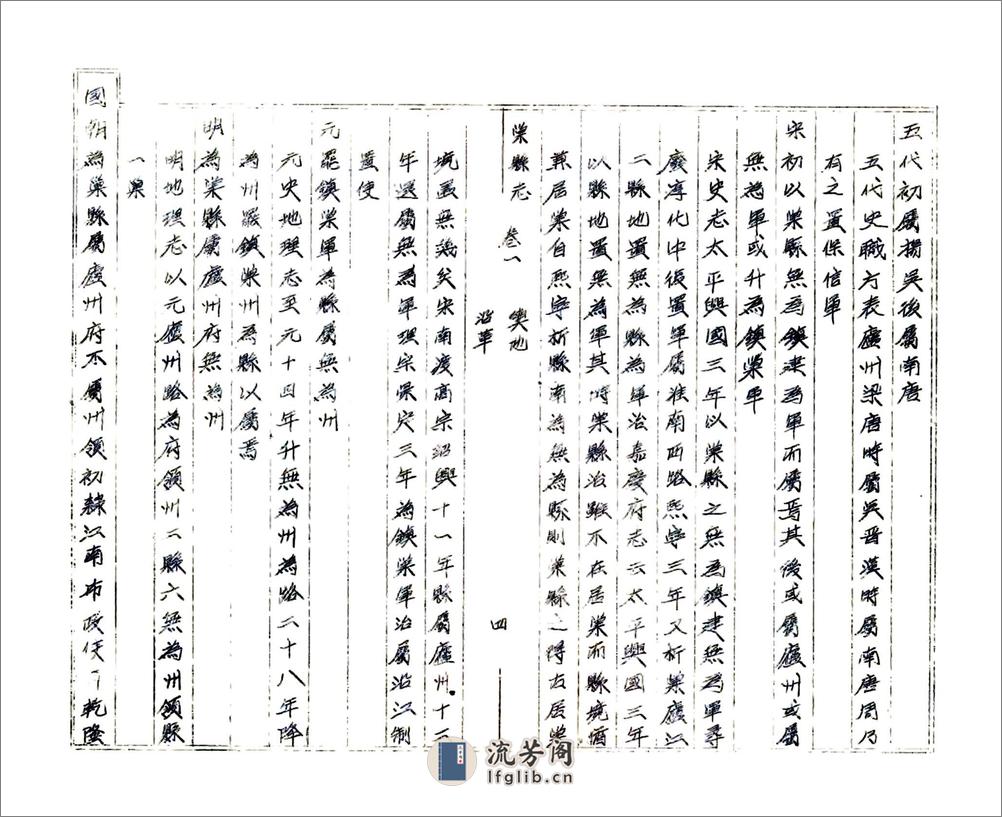 五代初屬楊吳後屬南唐
五代史職方表廬州梁唐時屬吳晉漢時屬南唐周乃
有之置保信軍
宋初以巢縣無為鎮建為軍而屬焉其後或屬廬州或屬
無為軍或升為鎮巢軍
宋史志太平興國三年以巢縣之無為鎮建無為軍尋
廢淳化中復置軍屬淮南西路熙寧三年又析巢廬江
二縣地置無為縣為軍治嘉慶府志云太平興國三年
以縣地置無為軍其時巢縣治雖不在居巢而縣境猶
兼居巢自熙寧析縣南為無為縣則巢縣之得古居巢
巢縣志 卷一 輿地 沿革 四
境蓋無幾矣宋南渡高宗紹興十一年縣屬廬州十二
年還屬無為軍理宗景定三年為鎮巢軍治屬沿江制
置使
元罷鎮巢軍為縣屬無為州
元史地理志至元十四年升無為州為路二十八年降
為州罷鎮巢州為縣以屬焉
明為巢縣屬廬州府無為州
明地理志以元廬州路為府領州二縣六無為州領縣
一巢
國朝為巢縣屬廬州府不屬州領初隸江南布政使丁乾隆
流芳阁
lfglib.cn